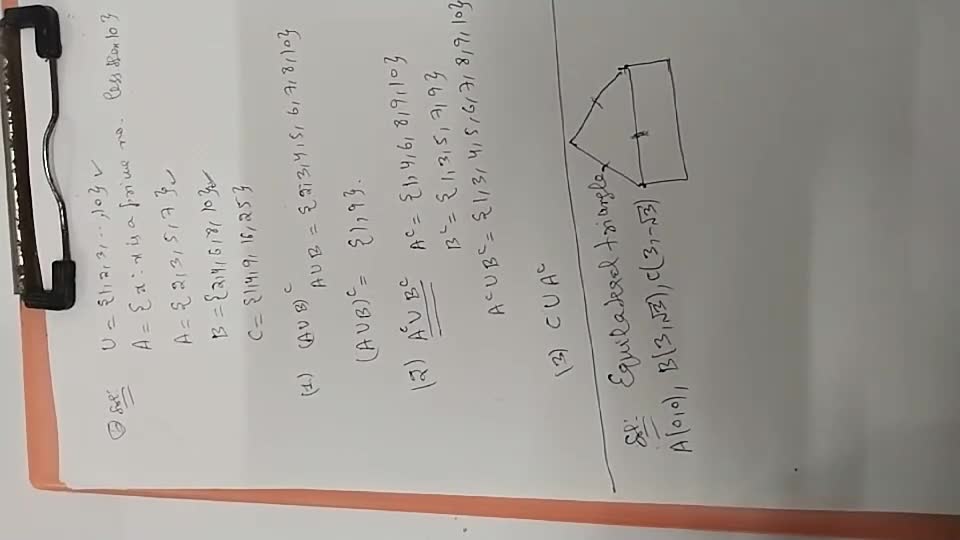 Sol:
U = {1, 2, 3, ..., 10} ✓
A = {x : x is a prime no. less than 10}
A = {2, 3, 5, 7} ✓
B = {2, 4, 6, 8, 10} ✓
C = {1, 4, 9, 16, 25}
(1) (A∪B)ᶜ
A∪B = {2, 3, 4, 5, 6, 7, 8, 10}
(A∪B)ᶜ = {1, 9}.
(2) Aᶜ∪Bᶜ Aᶜ = {1, 4, 6, 8, 9, 10}
Bᶜ = {1, 3, 5, 7, 9}
Aᶜ∪Bᶜ = {1, 3, 4, 5, 6, 7, 8, 9, 10}
(3) C∪Aᶜ
Sol: Equilateral triangle
A(0,0), B(3,√3), C(3,-√3)